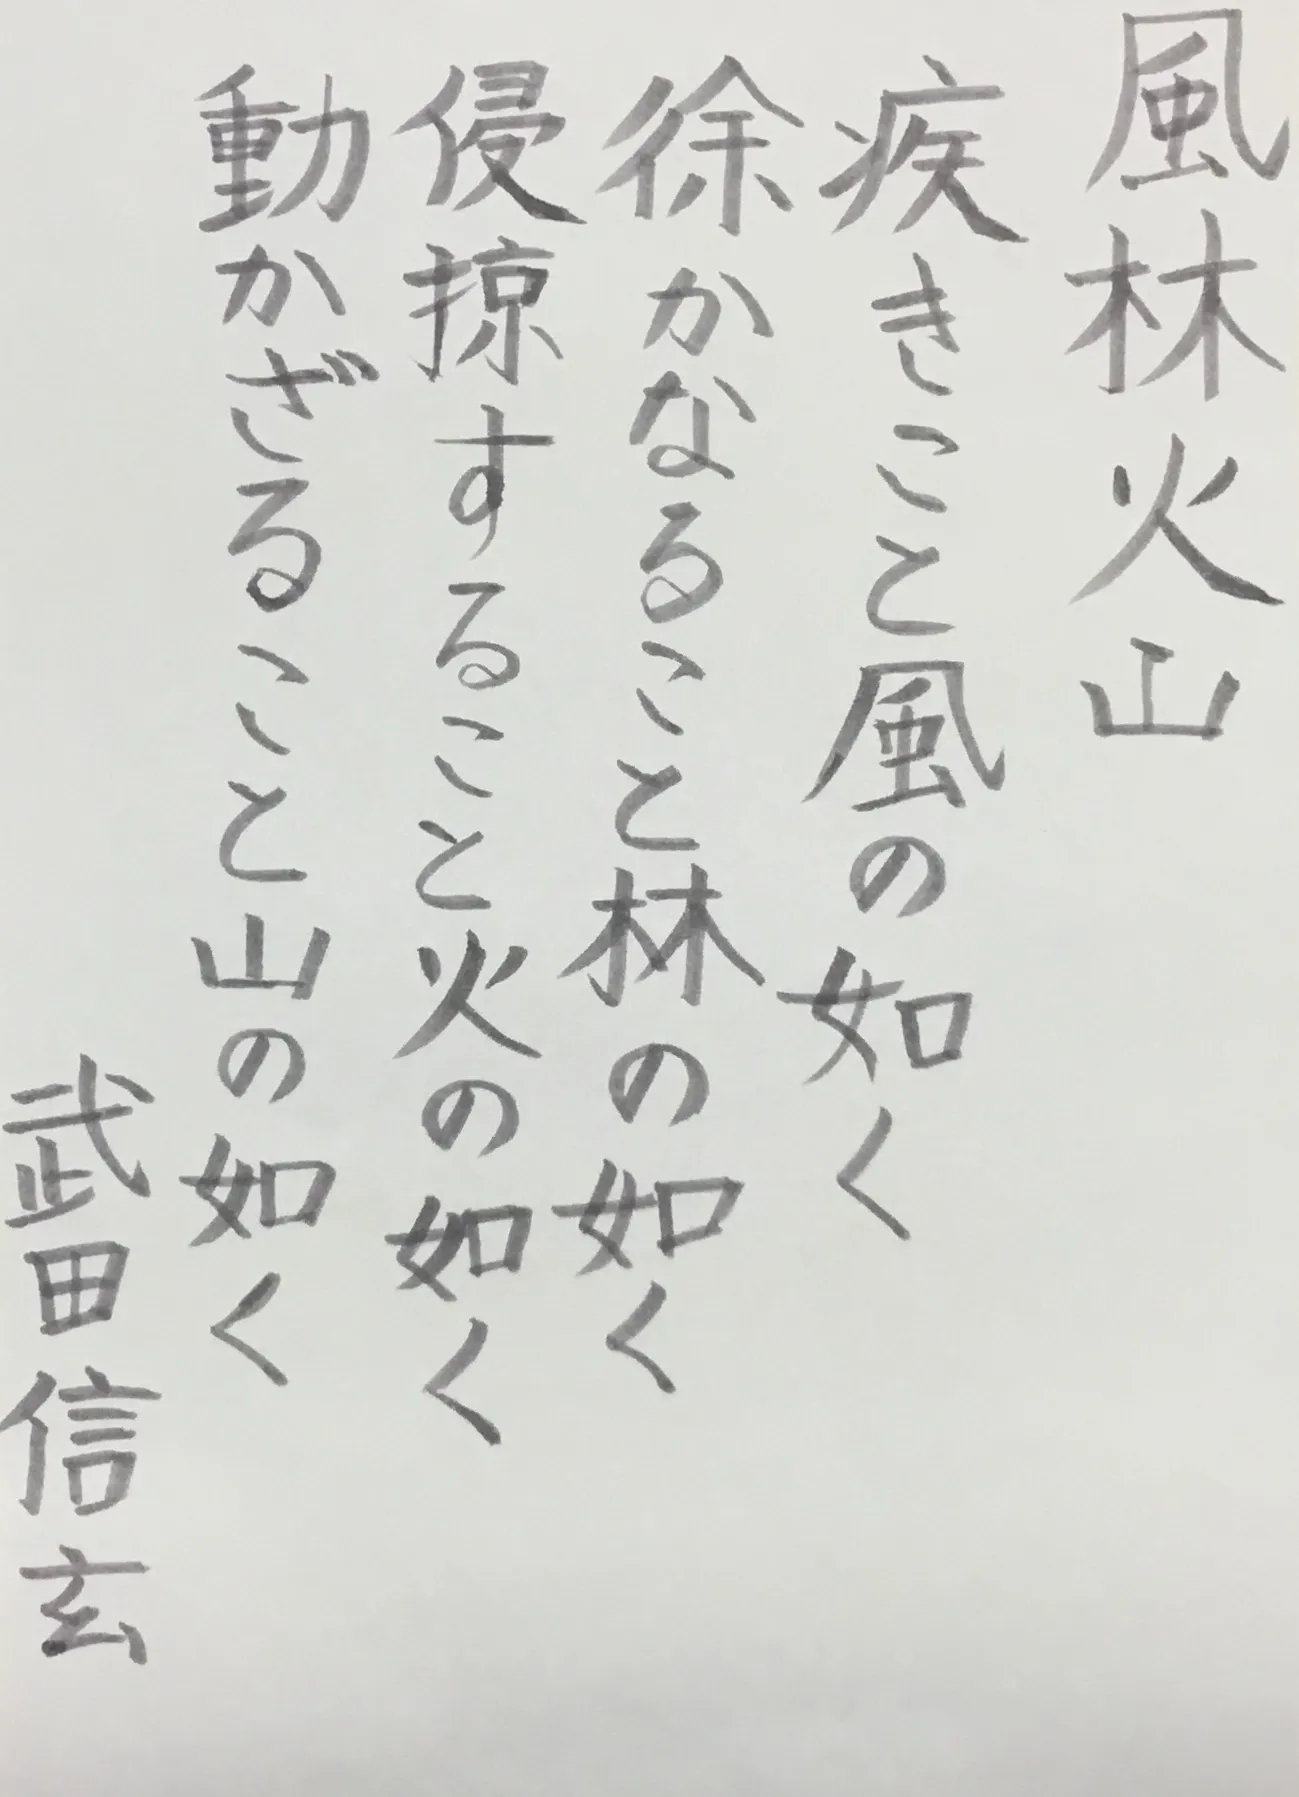 風林火山
疾きこと風の如く
徐かなること林の如く
侵掠すること火の如く
動かざること山の如く
武田信玄